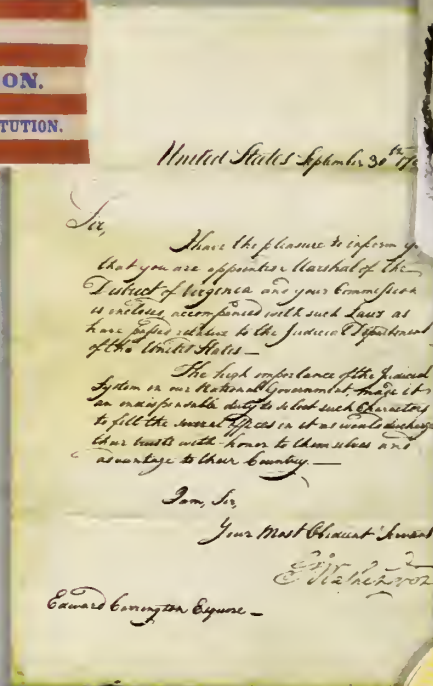 ON.
TUTION.
United States September 30th 17
Sir,
I have the pleasure to inform y
that you are appointed Marshal of the
District of Virginia and your Commission
is inclosed, accompanied with such Laws as
have passed relative to the Judicial Department
of the United States—
The high importance of the Judicial
System in our National Government, make it
an indispensable duty to select such Characters
to fill the several offices in it as would discharge
their trusts with honor to themselves and
advantage to their Country.—
I am, Sir,
Your Most Obedient Servant
Edward Carrington Esquire—